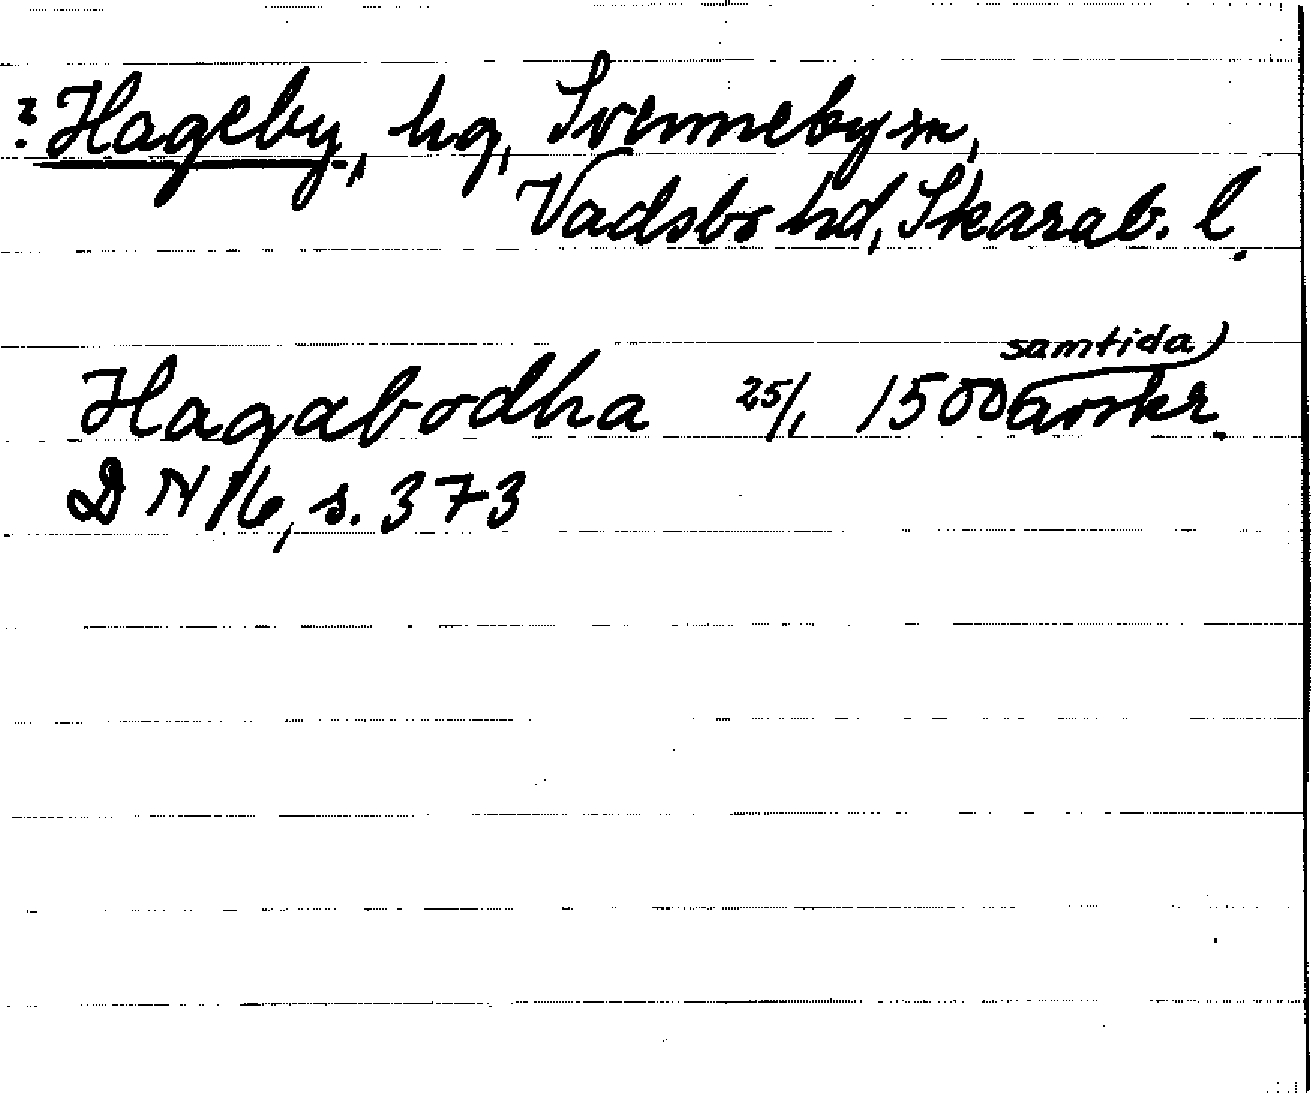 ? Hageby, hg, Svenneby sn,
Vadsbo hd, Skarab. l.
Hagabodha 25/1 1500 samtida) avskr.
DN 16, s. 373